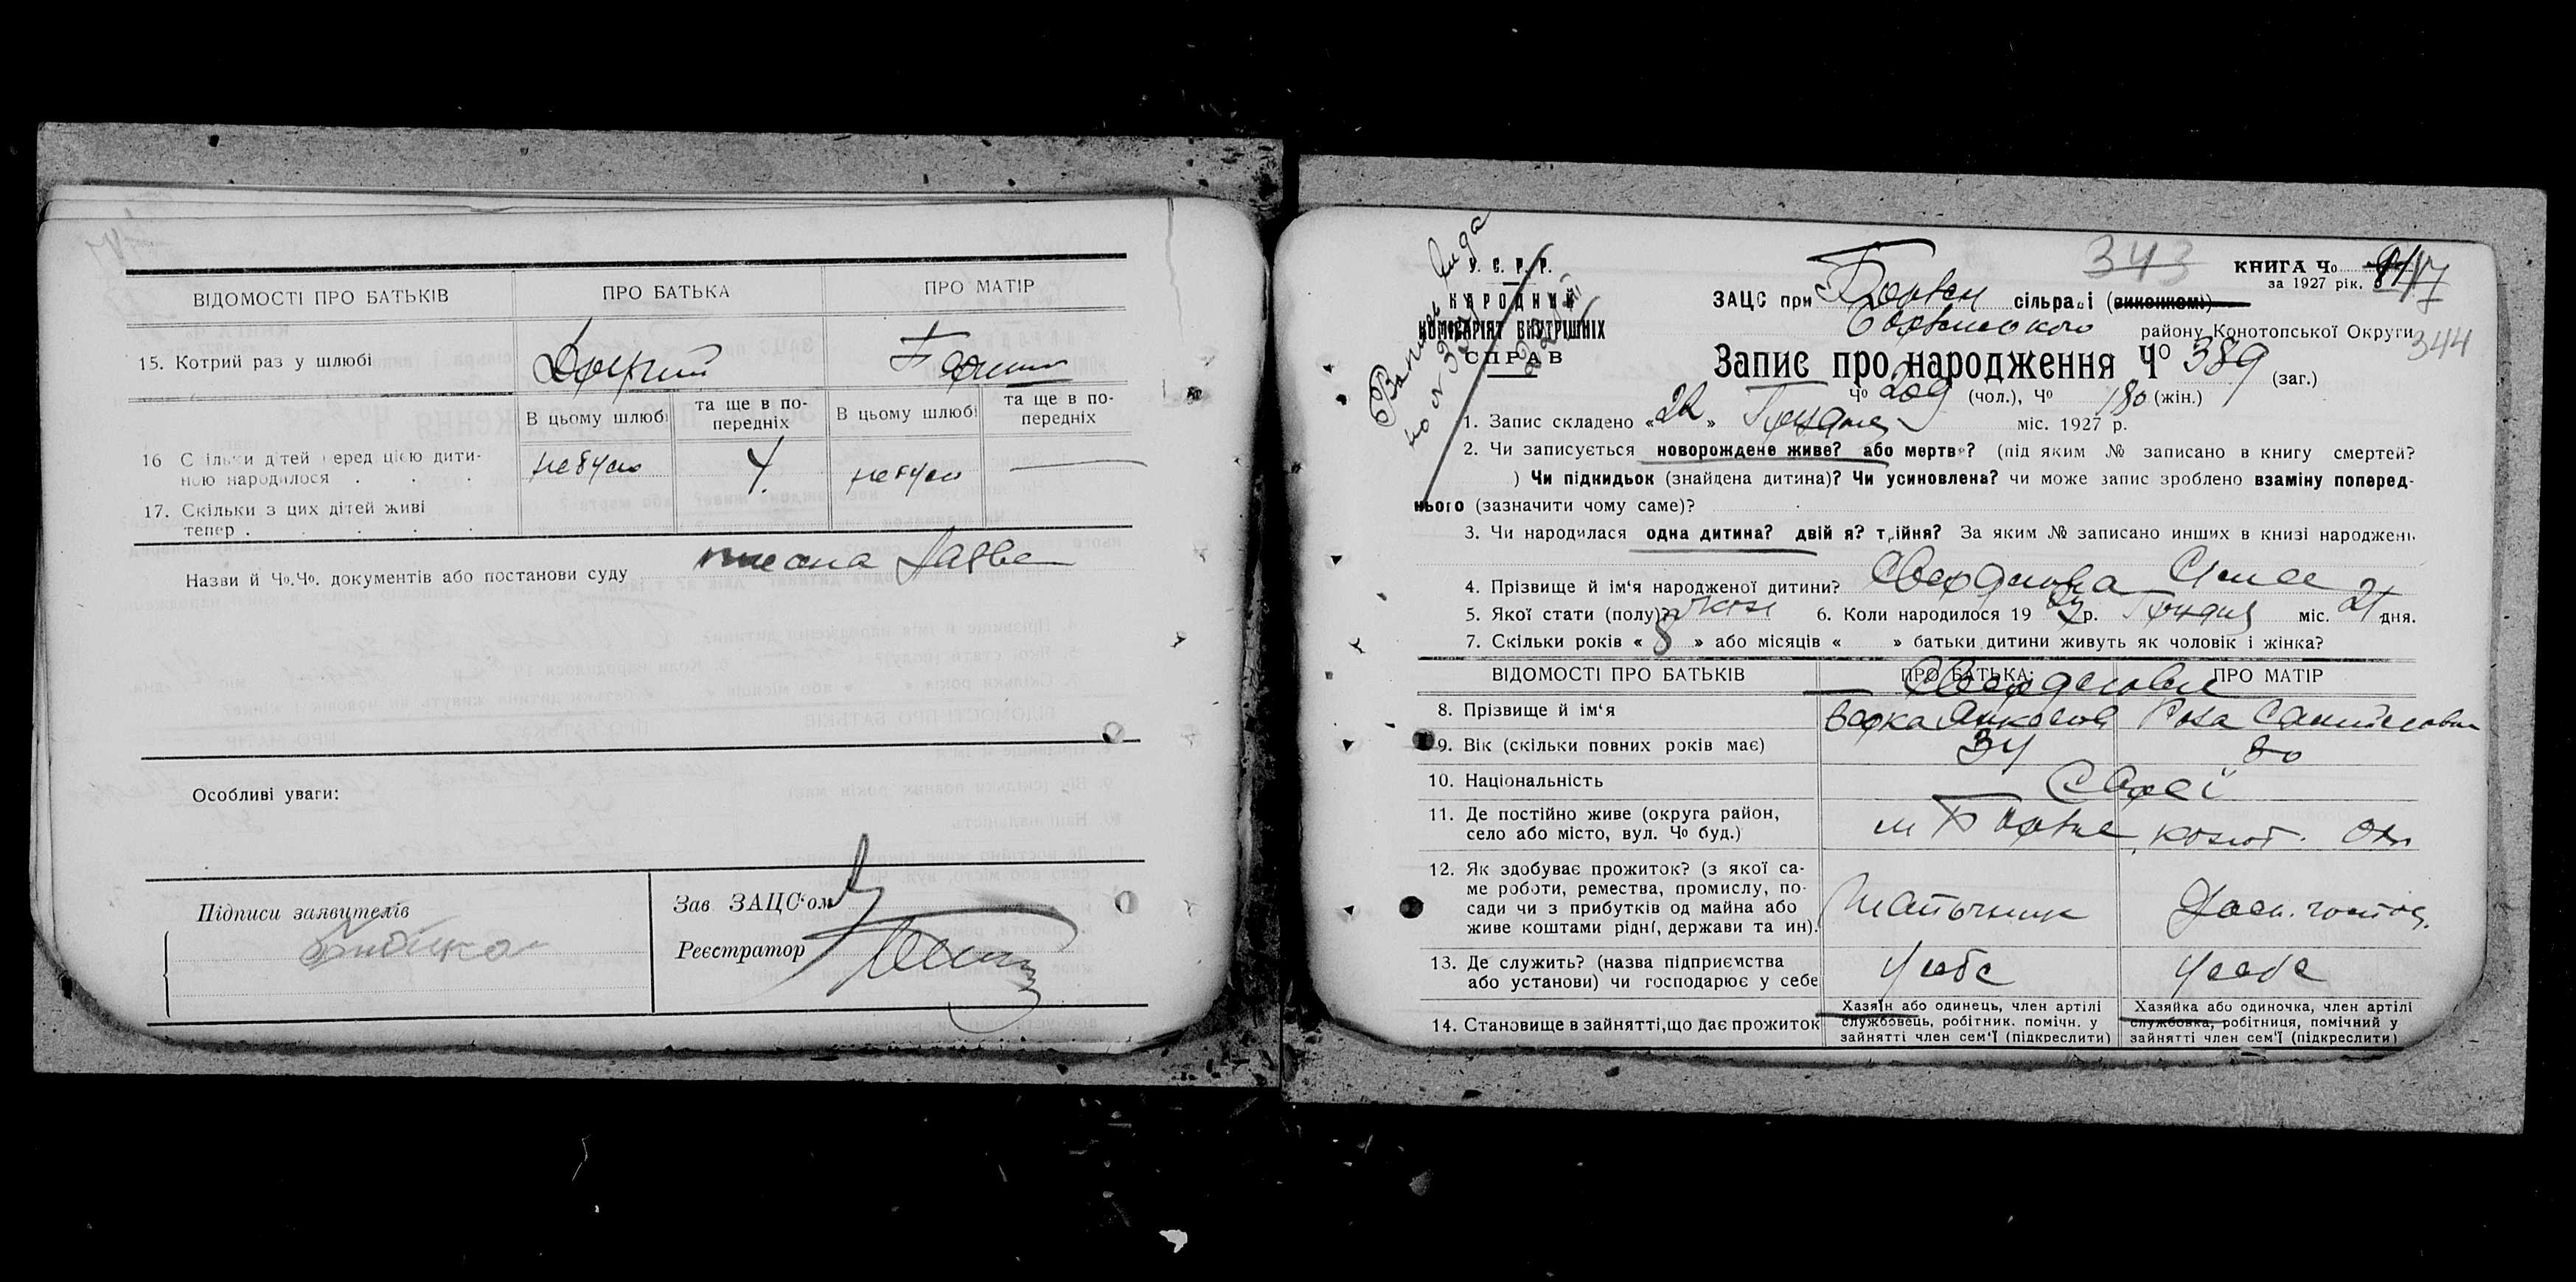 ВІДОМОСТІ ПРО БАТЬКІВ
ПРО БАТЬКА
ПРО МАТІР
15. Котрий раз у шлюбі
Другий
В цьому шлюбі
та ще в по-
передніх
В цьому шлюбі
та ще в по-
передніх
16 Скільки дітей перед цією дити-
ною народилося . . .
не було
4
не було
17. Скільки з цих дітей живі
тепер . . . . .
Назви й Чо.Чо. документів або постанови суду
Особливі уваги:
Підписи заявителів
Зав. ЗАЦС'ом
Реєстратор
У. С. Р. Р.
НАРОДНИЙ
КОМІСАРІЯТ ВНУТРІШНІХ
СПРАВ
343
КНИГА Чо
за 1927 рік.
ЗАЦС при Борзен сільраді (виконкомі)
Борзенського району Конотопської Округи
344
Запис про народження Чо 389 (заг.)
Чо 209 (чол.), Чо 180 (жін.)
1. Запис складено « 22 » Грудня міс. 1927 р.
2. Чи записується новорождене живе? або мертве? (під яким № записано в книгу смертей?
) Чи підкидьок (знайдена дитина)? Чи усиновлена? чи може запис зроблено взаміну поперед-
нього (зазначити чому саме)?
3. Чи народилася одна дитина? двійня? трійня? За яким № записано инших в книзі народжень
4. Прізвище й ім'я народженої дитини? Свердлова
5. Якої стати (полу)? жін 6. Коли народилося 19 27 р. Грудня міс. 21 дня.
7. Скільки років « 8 » або місяців « » батьки дитини живуть як чоловік і жінка?
ВІДОМОСТІ ПРО БАТЬКІВ
ПРО БАТЬКА:
ПРО МАТІР
Свердлови
8. Прізвище й ім'я
Роза
9. Вік (скільки повних років має)
34
30
10. Національність
Євреї
11. Де постійно живе (округа район,
село або місто, вул. Чо буд.)
м Борзна, Конот. Окр
12. Як здобуває прожиток? (з якої са-
ме роботи, ремества, промислу, по-
сади чи з прибутків од майна або
живе коштами рідні, держави та ин).
Шапочник
Дом. господ.
13. Де служить? (назва підприємства
або установи) чи господарює у себе
У себе
У себе
14. Становище в зайнятті, що дає прожиток
Хазяїн або одинець, член артілі
службовець, робітник. помічн. у
зайнятті член сем'ї (підкреслити)
Хазяйка або одиночка, член артілі
службовка, робітниця, помічний у
зайнятті член сем'ї (підкреслити)